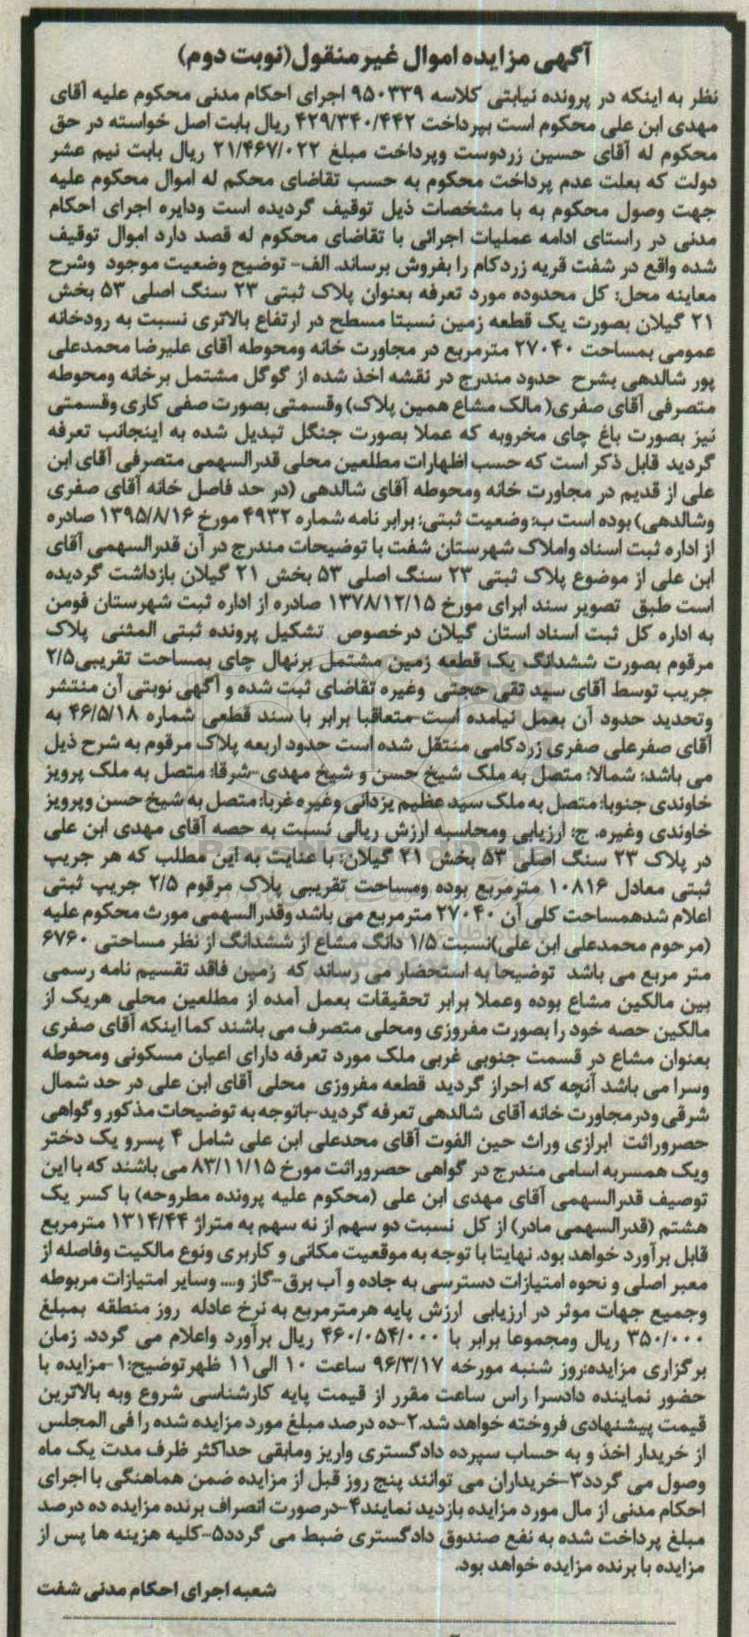 آگهی مزایده اموال غیر منقول(نوبت دوم)
نظر به اینکه در پرونده نیابتی کلاسه ۹۵۰۳۳۹ اجرای احکام مدنی محکوم علیه آقای
مهدی ابن علی محکوم است بپرداخت ۴۲۹/۳۴۰/۴۴۲ ریال بابت اصل خواسته در حق
محکوم له آقای حسین زردوست وپرداخت مبلغ ۲۱/۴۶۷/۰۲۲ ریال بابت نیم عشر
دولت که بعلت عدم پرداخت محکوم به حسب تقاضای محکم له اموال محکوم علیه
جهت وصول محکوم به با مشخصات ذیل توقیف گردیده است ودایره اجرای احکام
مدنی در راستای ادامه عملیات اجرائی با تقاضای محکوم له قصد دارد اموال توقیف
شده واقع در شفت قریه زردکام را بفروش برساند. الف- توضیح وضعیت موجود وشرح
معاینه محل: کل محدوده مورد تعرفه بعنوان پلاک ثبتی ۲۳ سنگ اصلی ۵۳ بخش
۲۱ گیلان بصورت یک قطعه زمین نسبتا مسطح در ارتفاع بالاتری نسبت به رودخانه
عمومی بمساحت ۲۷۰۴۰ مترمربع در مجاورت خانه ومحوطه آقای علیرضا محمدعلی
پور شالدهی بشرح حدود مندرج در نقشه اخذ شده از گوگل مشتمل برخانه ومحوطه
متصرفی آقای صفری( مالک مشاع همین پلاک) وقسمتی بصورت صفی کاری وقسمتی
نیز بصورت باغ چای مخروبه که عملا بصورت جنگل تبدیل شده به اینجانب تعرفه
گردید قابل ذکر است که حسب اظهارات مطلعین محلی قدرالسهمی متصرفی آقای ابن
علی از قدیم در مجاورت خانه ومحوطه آقای شالدهی (در حد فاصل خانه آقای صفری
وشالدهی) بوده است ب: وضعیت ثبتی: برابر نامه شماره ۴۹۳۲ مورخ ۱۳۹۵/۸/۱۶ صادره
از اداره ثبت اسناد واملاک شهرستان شفت با توضیحات مندرج در آن قدرالسهمی آقای
ابن علی از موضوع پلاک ثبتی ۲۳ سنگ اصلی ۵۳ بخش ۲۱ گیلان بازداشت گردیده
است طبق تصویر سند ابرای مورخ ۱۳۷۸/۱۲/۱۵ صادره از اداره ثبت شهرستان فومن
به اداره کل ثبت اسناد استان گیلان درخصوص تشکیل پرونده ثبتی المثنی پلاک
مرقوم بصورت ششدانگ یک قطعه زمین مشتمل برنهال چای بمساحت تقریبی۲/۵
جریب توسط آقای سید تقی حجتی وغیره تقاضای ثبت شده و آگهی نوبتی آن منتشر
وتحدید حدود آن بعمل نیامده است-متعاقبا برابر با سند قطعی شماره ۴۶/۵/۱۸ به
آقای صفرعلی صفری زردکامی منتقل شده است حدود اربعه پلاک مرقوم به شرح ذیل
می باشد: شمالا: متصل به ملک شیخ حسن و شیخ مهدی-شرقا: متصل به ملک پرویز
خاوندی جنوبا: متصل به ملک سید عظیم یزدانی وغیره غربا: متصل به شیخ حسن وپرویز
خاوندی وغیره. ج: ارزیابی ومحاسبه ارزش ریالی نسبت به حصه آقای مهدی ابن علی
در پلاک ۲۳ سنگ اصلی ۵۳ بخش ۲۱ گیلان: با عنایت به این مطلب که هر جریب
ثبتی معادل ۱۰۸۱۶ مترمربع بوده ومساحت تقریبی پلاک مرقوم ۲/۵ جریب ثبتی
اعلام شدهمساحت کلی آن ۲۷۰۴۰ مترمربع می باشد وقدرالسهمی مورث محکوم علیه
(مرحوم محمدعلی ابن علی)نسبت ۱/۵ دانگ مشاع از ششدانگ از نظر مساحتی ۶۷۶۰
متر مربع می باشد توضیحا به استحضار می رساند که زمین فاقد تقسیم نامه رسمی
بین مالکین مشاع بوده وعملا برابر تحقیقات بعمل آمده از مطلعین محلی هریک از
مالکین حصه خود را بصورت مفروزی ومحلی متصرف می باشند کما اینکه آقای صفری
بعنوان مشاع در قسمت جنوبی غربی ملک مورد تعرفه دارای اعیان مسکونی ومحوطه
وسرا می باشد آنچه که احراز گردید قطعه مفروزی محلی آقای ابن علی در حد شمال
شرقی ودرمجاورت خانه آقای شالدهی تعرفه گردید-باتوجه به توضیحات مذکور وگواهی
حصروراثت ابرازی وراث حین الفوت آقای محدعلی ابن علی شامل ۴ پسرو یک دختر
ویک همسربه اسامی مندرج در گواهی حصروراثت مورخ ۸۳/۱۱/۱۵ می باشند که با این
توصیف قدرالسهمی آقای مهدی ابن علی (محکوم علیه پرونده مطروحه) با کسر یک
هشتم (قدرالسهمی مادر) از کل نسبت دو سهم از نه سهم به متراژ ۱۳۱۴/۴۴ مترمربع
قابل برآورد خواهد بود. نهایتا با توجه به موقعیت مکانی و کاربری ونوع مالکیت وفاصله از
معبر اصلی و نحوه امتیازات دسترسی به جاده و آب برق-گاز و.... وسایر امتیازات مربوطه
وجمیع جهات موثر در ارزیابی ارزش پایه هرمترمربع به نرخ عادله روز منطقه بمبلغ
۳۵۰/۰۰۰ ریال ومجموعا برابر با ۴۶۰/۰۵۴/۰۰۰ ریال برآورد واعلام می گردد. زمان
برگزاری مزایده:روز شنبه مورخه ۹۶/۳/۱۷ ساعت ۱۰ الی۱۱ ظهرتوضیح:۱-مزایده با
حضور نماینده دادسرا راس ساعت مقرر از قیمت پایه کارشناسی شروع وبه بالاترین
قیمت پیشنهادی فروخته خواهد شد.۲-ده درصد مبلغ مورد مزایده شده را فی المجلس
از خریدار اخذ و به حساب سپرده دادگستری واریز ومابقی حداکثر ظرف مدت یک ماه
وصول می گردد۳-خریداران می توانند پنج روز قبل از مزایده ضمن هماهنگی با اجرای
احکام مدنی از مال مورد مزایده بازدید نمایند۴-درصورت انصراف برنده مزایده ده درصد
مبلغ پرداخت شده به نفع صندوق دادگستری ضبط می گردد۵-کلیه هزینه ها پس از
مزایده با برنده مزایده خواهد بود.
شعبه اجرای احکام مدنی شفت